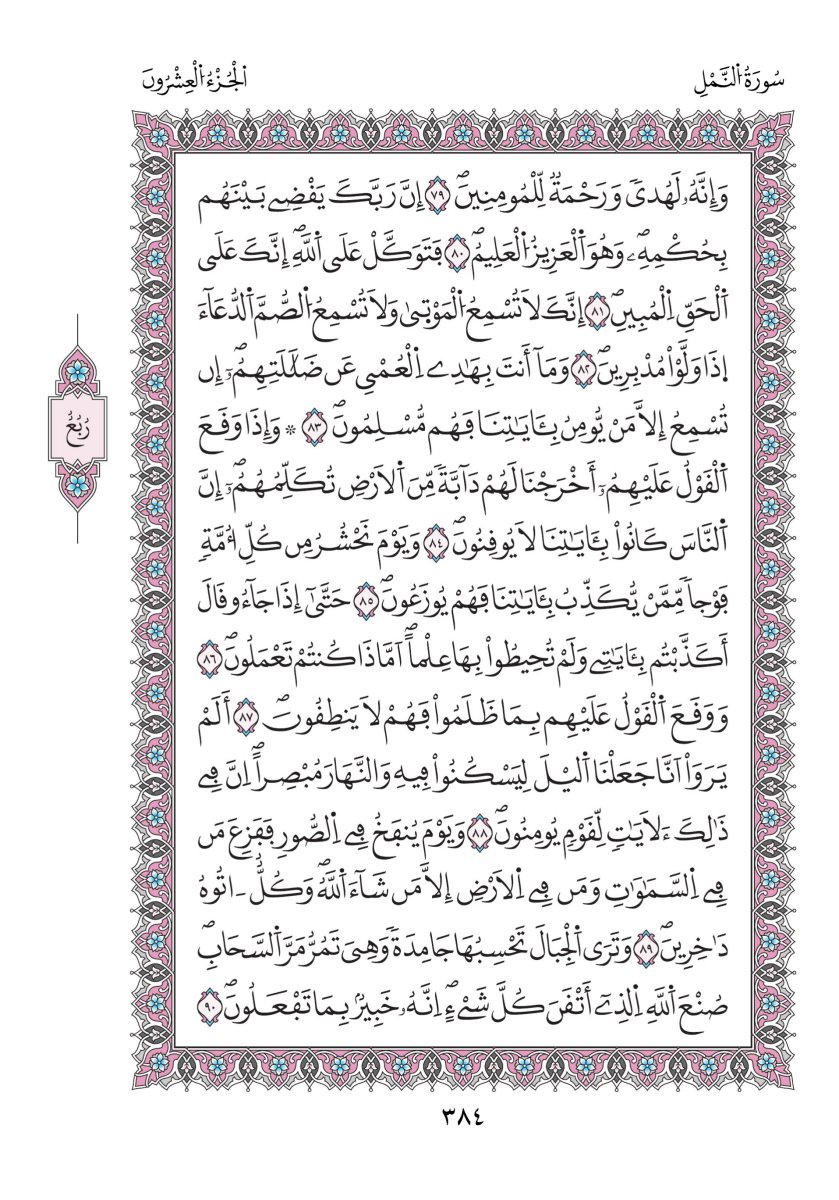 سُورَةُ اُ۬لنَّمْلِ
اُ۬لْجُزْءُ اُ۬لْعِشْرُونَ
وَإِنَّهُۥ لَهُدىٗ وَرَحْمَةٞ لِّلْمُومِنِينَۖ ٧٩ إِنَّ رَبَّكَ يَقْضِے بَيْنَهُم
بِحُكْمِهِۦۖ وَهُوَ اَ۬لْعَزِيزُ اُ۬لْعَلِيمُۖ ٨٠ فَتَوَكَّلْ عَلَي اَ۬للَّهِۖ إِنَّكَ عَلَي
اَ۬لْحَقِّ اِ۬لْمُبِينِۖ ٨١ إِنَّكَ لَا تُسْمِعُ اُ۬لْمَوْتۭىٰ وَلَا تُسْمِعُ اُ۬لصُّمَّ اَ۬لدُّعَآءَ
اِ۪ذَا وَلَّوْاْ مُدْبِرِينَۖ ٨٢ وَمَآ أَنتَ بِهَٰدِے اِ۬لْعُمْيِ عَن ضَلَٰلَتِهِمُۥٓۖ إِن
تُسْمِعُ إِلَّا مَنْ يُّومِنُ بِـَٔايَٰتِنَا فَهُم مُّسْلِمُونَۖ ٨٣ ۞ وَإِذَا وَقَعَ
اَ۬لْقَوْلُ عَلَيْهِمُۥٓ أَخْرَجْنَا لَهُمْ دَآبَّةٗ مِّنَ اَ۬لَارْضِ تُكَلِّمُهُمُۥٓۖ إِنَّ
اَ۬لنَّاسَ كَانُواْ بِـَٔايَٰتِنَا لَا يُوقِنُونَۖ ٨٤ وَيَوْمَ نَحْشُرُ مِن كُلِّ أُمَّةٖ
فَوْجاٗ مِّمَّنْ يُّكَذِّبُ بِـَٔايَٰتِنَا فَهُمْ يُوزَعُونَۖ ٨٥ حَتَّىٰٓ إِذَا جَآءُو قَالَ
أَكَذَّبْتُم بِـَٔايَٰتِے وَلَمْ تُحِيطُواْ بِهَا عِلْماًۖ اَمَّاذَا كُنتُمْ تَعْمَلُونَۖ ٨٦
وَوَقَعَ اَ۬لْقَوْلُ عَلَيْهِم بِمَا ظَلَمُواْ فَهُمْ لَا يَنطِقُونَۖ ٨٧ أَلَمْ
يَرَوَاْ اَنَّا جَعَلْنَا اَ۬ليْلَ لِيَسْكُنُواْ فِيهِ وَالنَّهَارَ مُبْصِراًۖ اِنَّ فِے
ذَٰلِكَ ءَلَايَٰتٖ لِّقَوْمٖ يُومِنُونَۖ ٨٨ وَيَوْمَ يُنفَخُ فِے اِ۬لصُّورِ فَفَزِعَ مَن
فِے اِ۬لسَّمَٰوَٰتِ وَمَن فِے اِ۬لَارْضِ إِلَّا مَن شَآءَ اَ۬للَّهُۖ وَكُلٌّ ـ اتُوهُ
دَٰخِرِينَۖ ٨٩ وَتَرَي اَ۬لْجِبَالَ تَحْسِبُهَا جَامِدَةٗ وَهِيَ تَمُرُّ مَرَّ اَ۬لسَّحَابِۖ
صُنْعَ اَ۬للَّهِ اِ۬لذِےٓ أَتْقَنَ كُلَّ شَےْءٍۖ اِنَّهُۥ خَبِيرُۢ بِمَا تَفْعَلُونَۖ ٩٠
رُبُعُ
٣٨٤